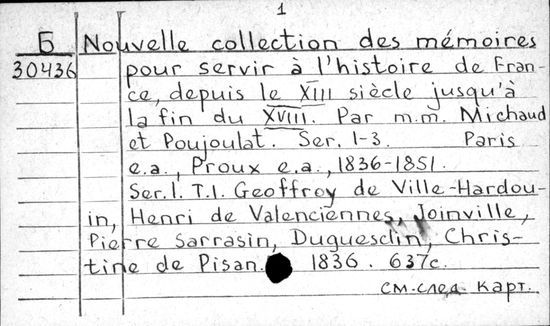 1
Б Nouvelle collection des mémoires
30436 pour servir à l'histoire de Fran-
ce, depuis le XIII siècle jusqu'à
la fin du XVIII. Par m.m. Michaud
et Poujoulat. Ser. 1-3. Paris
e.a., Proux e.a., 1836-1851.
Ser. 1. T.1. Geoffroy de Ville-Hardou-
in, Henri de Valenciennes, Joinville,
Pierre Sarrasin, Duguesclin, Chris-
tine de Pisan. 1836. 637c.
см. след. карт.